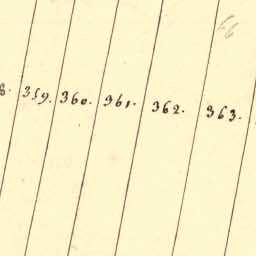 359. 360. 361. 362. 363.